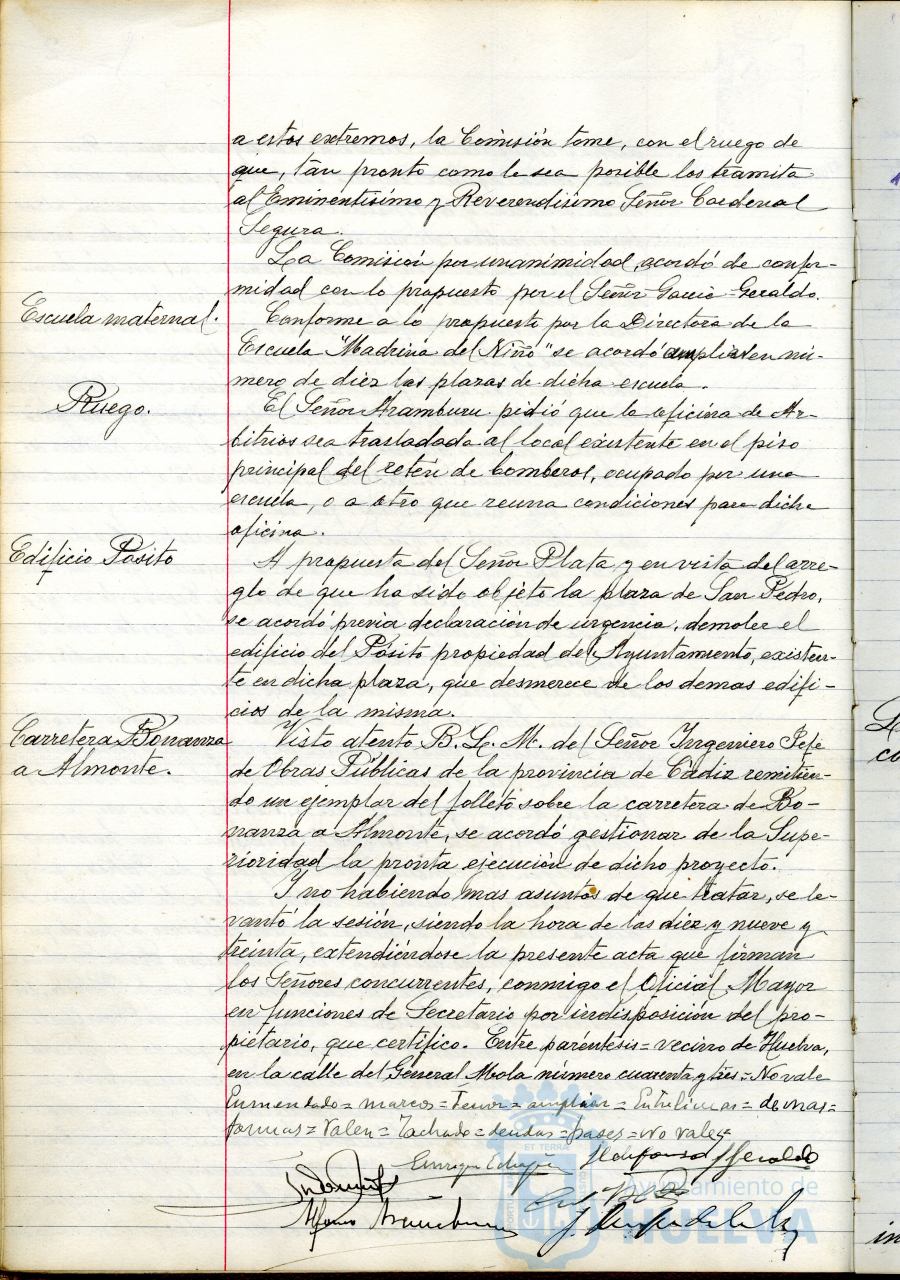 a estos extremos, la Comisión tome, con el ruego de
que, tan pronto como le sea posible los tramita
al Eminentisimo y Reverendisimo Señor Cardenal
Segura.
La Comisión por unanimidad, acordó de confor-
midad con lo propuesto por el Señor Garcia-Geraldo.
Escuela maternal.
Conforme a lo propuesto por la Directora de la
Escuela "Madrina del Niño" se acordó ampliar en nú-
mero de diez las plazas de dicha escuela.
Ruego.
El Señor Aramburu pidió que la oficina de Ar-
bitrios sea trasladada al local existente en el piso
principal del retén de bomberos, ocupado por una
escuela, o a otro que reuna condiciones para dicha
oficina.
Edificio Posito
A propuesta del Señor Plata, y en vista del arre-
glo de que ha sido objeto la plaza de San Pedro,
se acordó previa declaración de urgencia, demoler el
edificio del Pósito propiedad del Ayuntamiento, existen-
te en dicha plaza, que desmerece de los demas edifi-
cios de la misma.
Carretera Bonanza
a Almonte.
Visto atento B. L. M. del Señor Ingeniero Jefe
de Obras Públicas de la provincia de Cádiz remitien-
do un ejemplar del folleto sobre la carretera de Bo-
nanza a Almonte, se acordó gestionar de la Supe-
rioridad la pronta ejecución de dicho proyecto.
Y no habiendo mas asuntos de que tratar, se le-
vantó la sesión, siendo la hora de las diez y nueve y
treinta, extendiéndose la presente acta que firman
los Señores concurrentes, conmigo el Oficial Mayor
en funciones de Secretario por indisposición del pro-
pietario, que certifico. Entre paréntesis = vecino de Huelva,
en la calle del General Mola número cuarenta y tres = No vale
Enmendado = marcos = Tenor = ampliar = Entrelineas = demas =
formas = Valen = Tachado = deudas = frases = No vale =
Ildefonso Geraldo
Alfonso Aramburu
ET TERRÆ
Ayuntamiento de
HUELVA